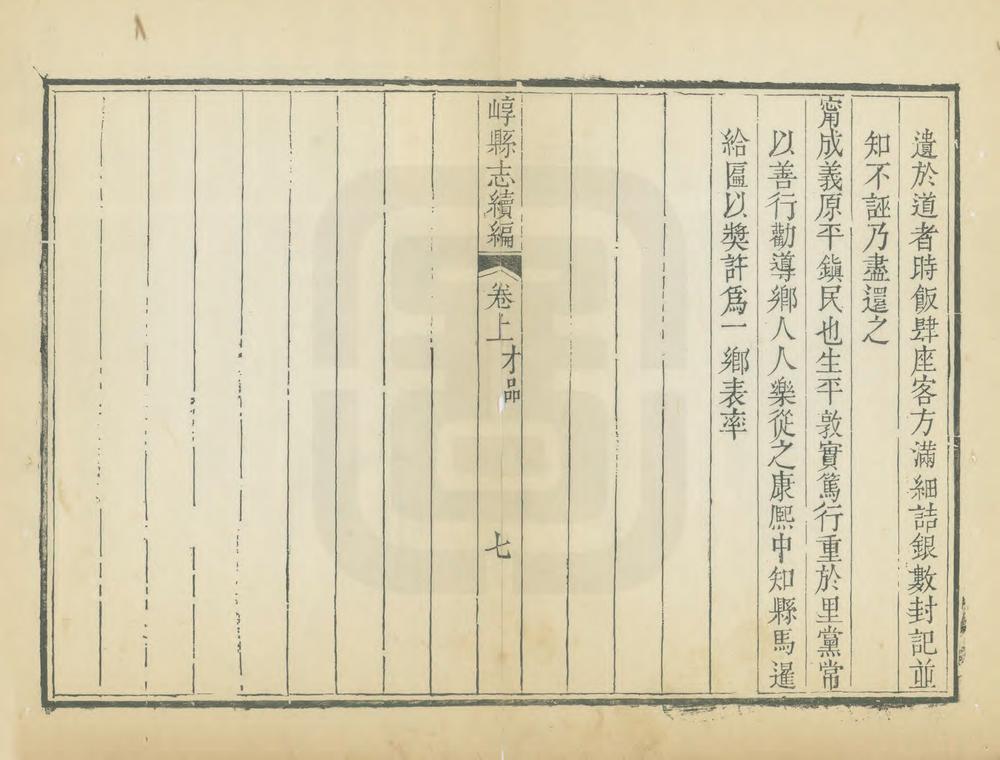 遺於道者時飯肆座客方滿細詰銀數封記並
知不誣乃盡還之
甯成義原平鎮民也生平敦實篤行重於里黨常
以善行勸導鄉人人樂從之康熙中知縣馬暹
給匾以獎許爲一鄉表率
崞縣志續編
卷上
才品
七